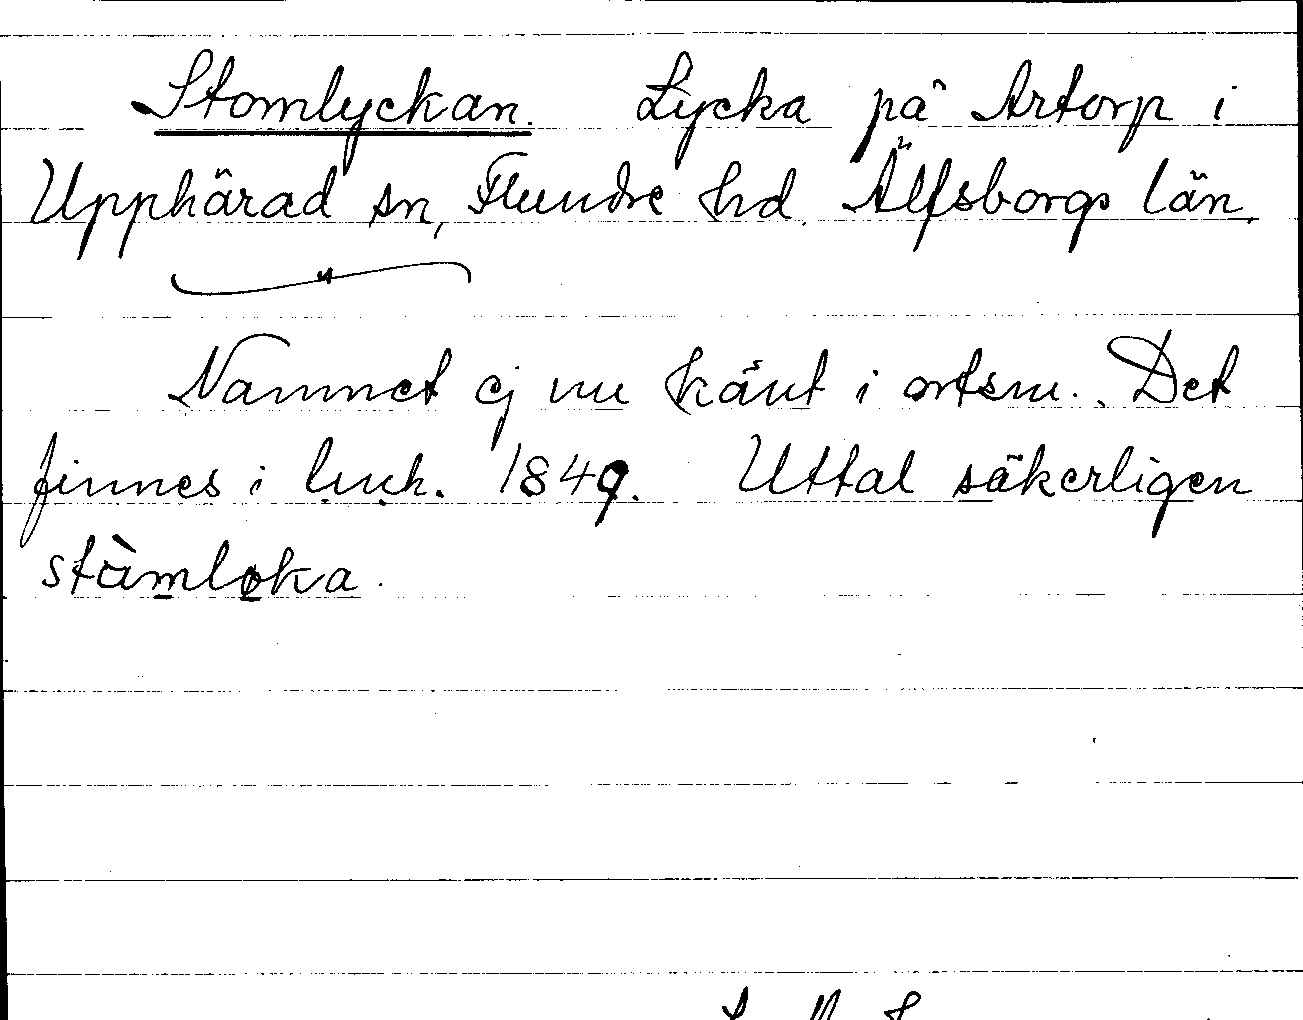 Stomlyckan. Lycka på Artorp i
Upphärad sn, Flundre hd. Älfsborgs län.
Namnet ej nu känt i ortsn. Det
finnes i 1849. Uttal säkerligen